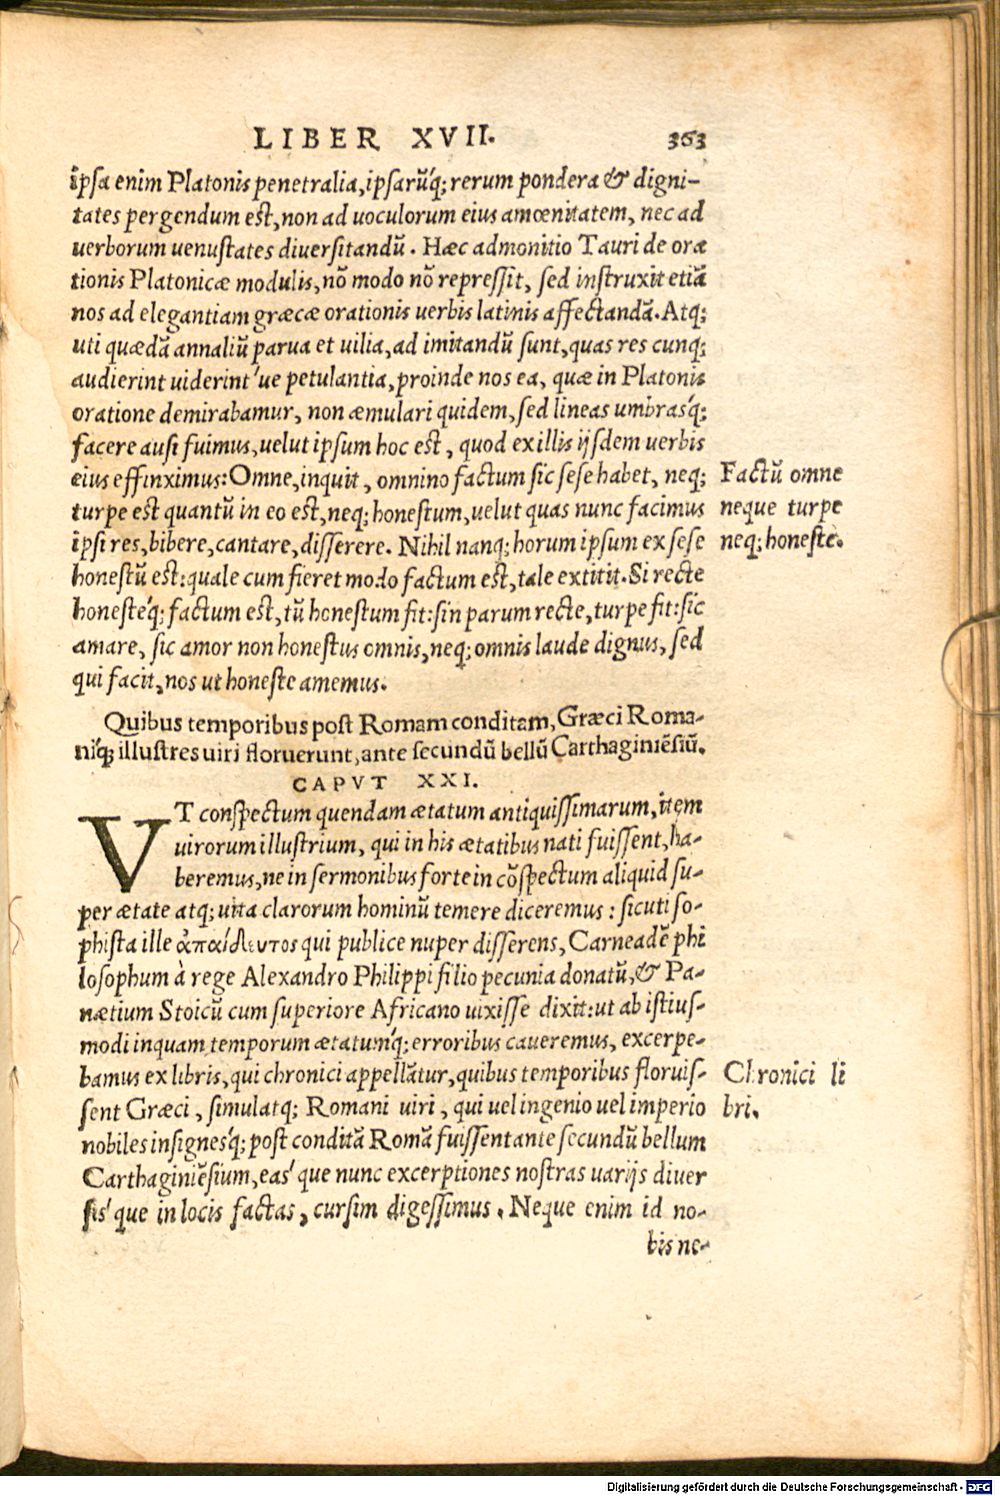 LIBER XVII. 363
ipsa enim Platonis penetralia, ipsarũq́; rerum pondera & digni-
tates pergendum est, non ad uoculorum eius amœnitatem, nec ad
uerborum uenustates diuersitandũ. Hæc admonitio Tauri de oræ
tionis Platonicæ modulis, nõ modo nõ repressit, sed instruxit etiã
nos ad elegantiam græcæ orationis uerbis latinis affectandã. Atq;
uti quædã annaliũ parua et uilia, ad imitandũ sunt, quas res cunq;
audierint uiderint'ue petulantia, proinde nos ea, quæ in Platonis
oratione demirabamur, non æmulari quidem, sed lineas umbrasq́;
facere ausi fuimus, uelut ipsum hoc est, quod ex illis ijsdem uerbis
eius effinximus: Omne, inquit, omnino factum sic sese habet, neq;
turpe est quantũ in eo est, neq; honestum, uelut quas nunc facimus
ipsi res, bibere, cantare, disserere. Nihil nanq; horum ipsum ex sese
honestũ est: quale cum fieret modo factum est, tale extitit. Si recte
honesteq́; factum est, tũ honestum fit: sin parum recte, turpe fit: sic
amare, sic amor non honestus omnis, neq; omnis laude dignus, sed
qui facit, nos ut honeste amemus.
Factũ omne
neque turpe
neq; honeste.
Quibus temporibus post Romam conditam, Græci Roma-
niq́; illustres uiri floruerunt, ante secundũ bellũ Carthaginiẽsiũ.
CAPVT XXI.
VT conspectum quendam ætatum antiquissimarum, item
uirorum illustrium, qui in his ætatibus nati fuissent, ha-
beremus, ne in sermonibus forte in cõspectum aliquid su-
per ætate atq; uita clarorum hominũ temere diceremus: sicuti so-
phista ille ἀπαίδευτος qui publice nuper disserens, Carneadẽ phi
losophum à rege Alexandro Philippi filio pecunia donatũ, & Pa-
nætium Stoicũ cum superiore Africano uixisse dixit: ut ab istius-
modi inquam temporum ætatumq́; erroribus caueremus, excerpe-
bamus ex libris, qui chronici appellãtur, quibus temporibus floruis-
sent Græci, simulatq; Romani uiri, qui uel ingenio uel imperio
nobiles insignesq́; post conditã Romã fuissent ante secundũ bellum
Carthaginiẽsium, eas'que nunc excerptiones nostras uarijs diuer
sis'que in locis factas, cursim digessimus. Neque enim id no-
bis ne-
Chronici li
bri.
Digitalisierung gefördert durch die Deutsche Forschungsgemeinschaft - DFG